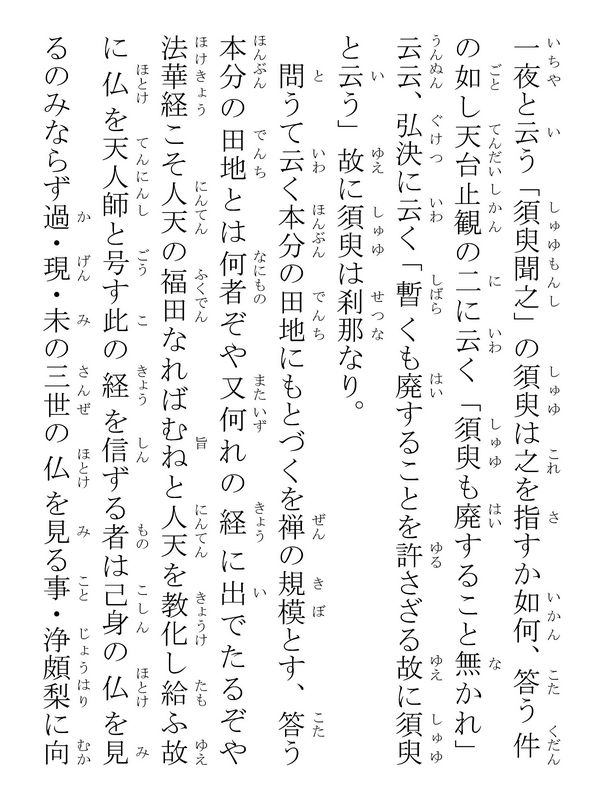 一夜と云う「須臾聞之」の須臾は之を指すか如何、答う件
の如し天台止観の二に云く「須臾も廃すること無かれ」
云云、弘決に云く「暫くも廃することを許さざる故に須臾
と云う」故に須臾は刹那なり。
問うて云く本分の田地にもとづくを禅の規模とす、答う
本分の田地とは何者ぞや又何れの経に出でたるぞや
法華経こそ人天の福田なればむねと人天を教化し給ふ故
に仏を天人師と号す此の経を信ずる者は己身の仏を見
るのみならず過・現・未の三世の仏を見る事・浄頗梨に向